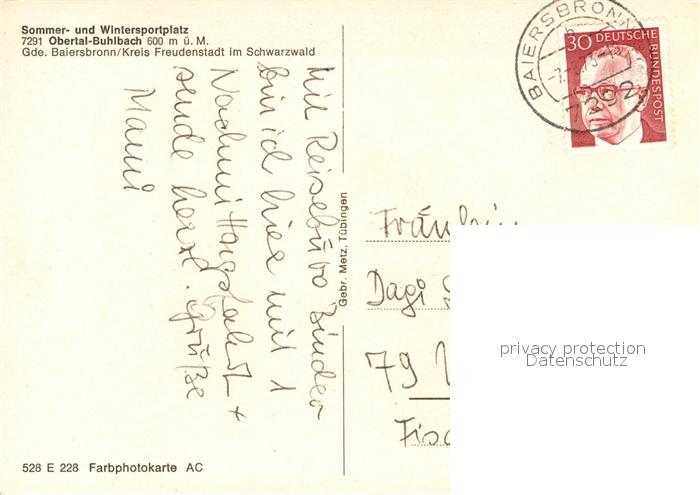 Sommer- und Wintersportplatz
7291 Obertal-Buhlbach 600 m ü. M.
Gde. Baiersbronn/Kreis Freudenstadt im Schwarzwald
Mit Reisebüro Binder
bin ich hier mit 1
Nachmittagsfahrt +
sende herzl. Grüße
Mami
Gebr. Metz, Tübingen
BAIERSBRONN
7292
30 DEUTSCHE
BUNDESPOST
Fräulein
Dagi
79
privacy protection
Datenschutz
528 E 228 Farbphotokarte AC